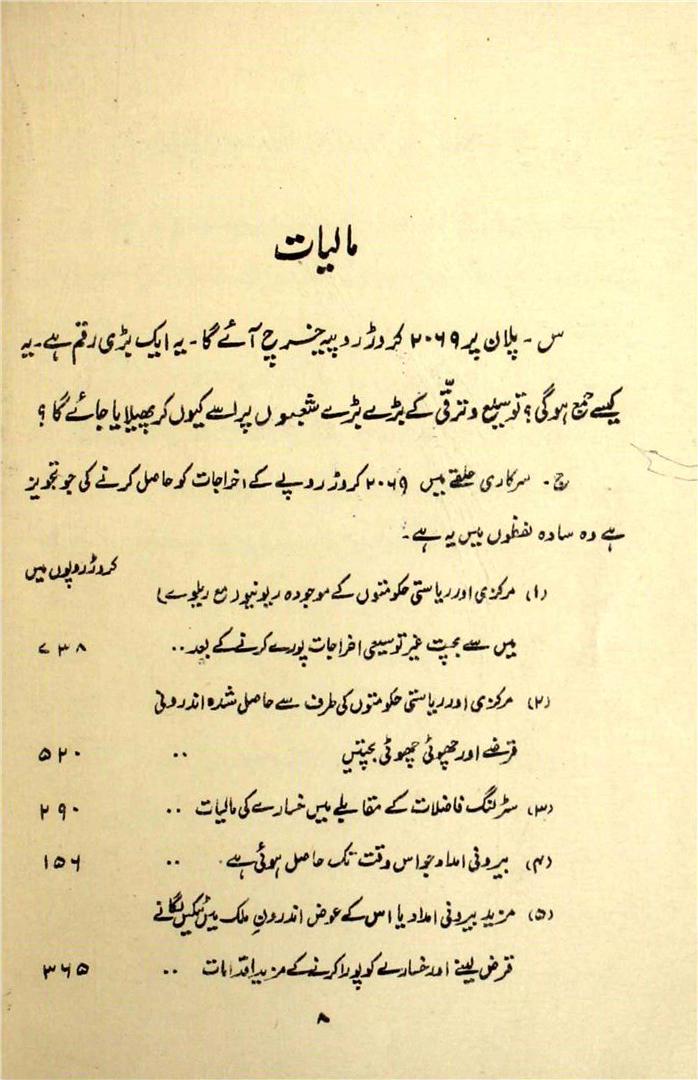 مالیات
س - پلان پر ۲۰۶۹ کروڑ روپیہ خرچ آئے گا - یہ ایک بڑی رقم ہے - یہ
کیسے جمع ہوگی ؟ توسیع و ترقی کے بڑے بڑے شعبوں پر اسے کیوں کر پھیلایا جائے گا ؟
ج - سرکاری حلقے میں ۲۰۶۹ کروڑ روپے کے اخراجات کو حاصل کرنے کی جو تجویز
ہے وہ سادہ لفظوں میں یہ ہے -
کروڑ روپوں میں
(۱) مرکزی اور ریاستی حکومتوں کے موجودہ ریونیو (مع ریلوے)
میں سے بچت غیر توسیعی اخراجات پورے کرنے کے بعد .. ۷۳۸
(۲) مرکزی اور ریاستی حکومتوں کی طرف سے حاصل شدہ اندرونی
قرضے اور چھوٹی چھوٹی بچتیں .. ۵۲۰
(۳) سٹرلنگ فاضلات کے مقابلے میں خسارے کی مالیات .. ۲۹۰
(۴) بیرونی امداد جو اس وقت تک حاصل ہوئی ہے .. ۱۵۶
(۵) مزید بیرونی امداد یا اس کے عوض اندرونِ ملک میں ٹیکس لگانے
قرض لینے اور خسارے کو پورا کرنے کے مزید اقدامات .. ۳۶۵
۸